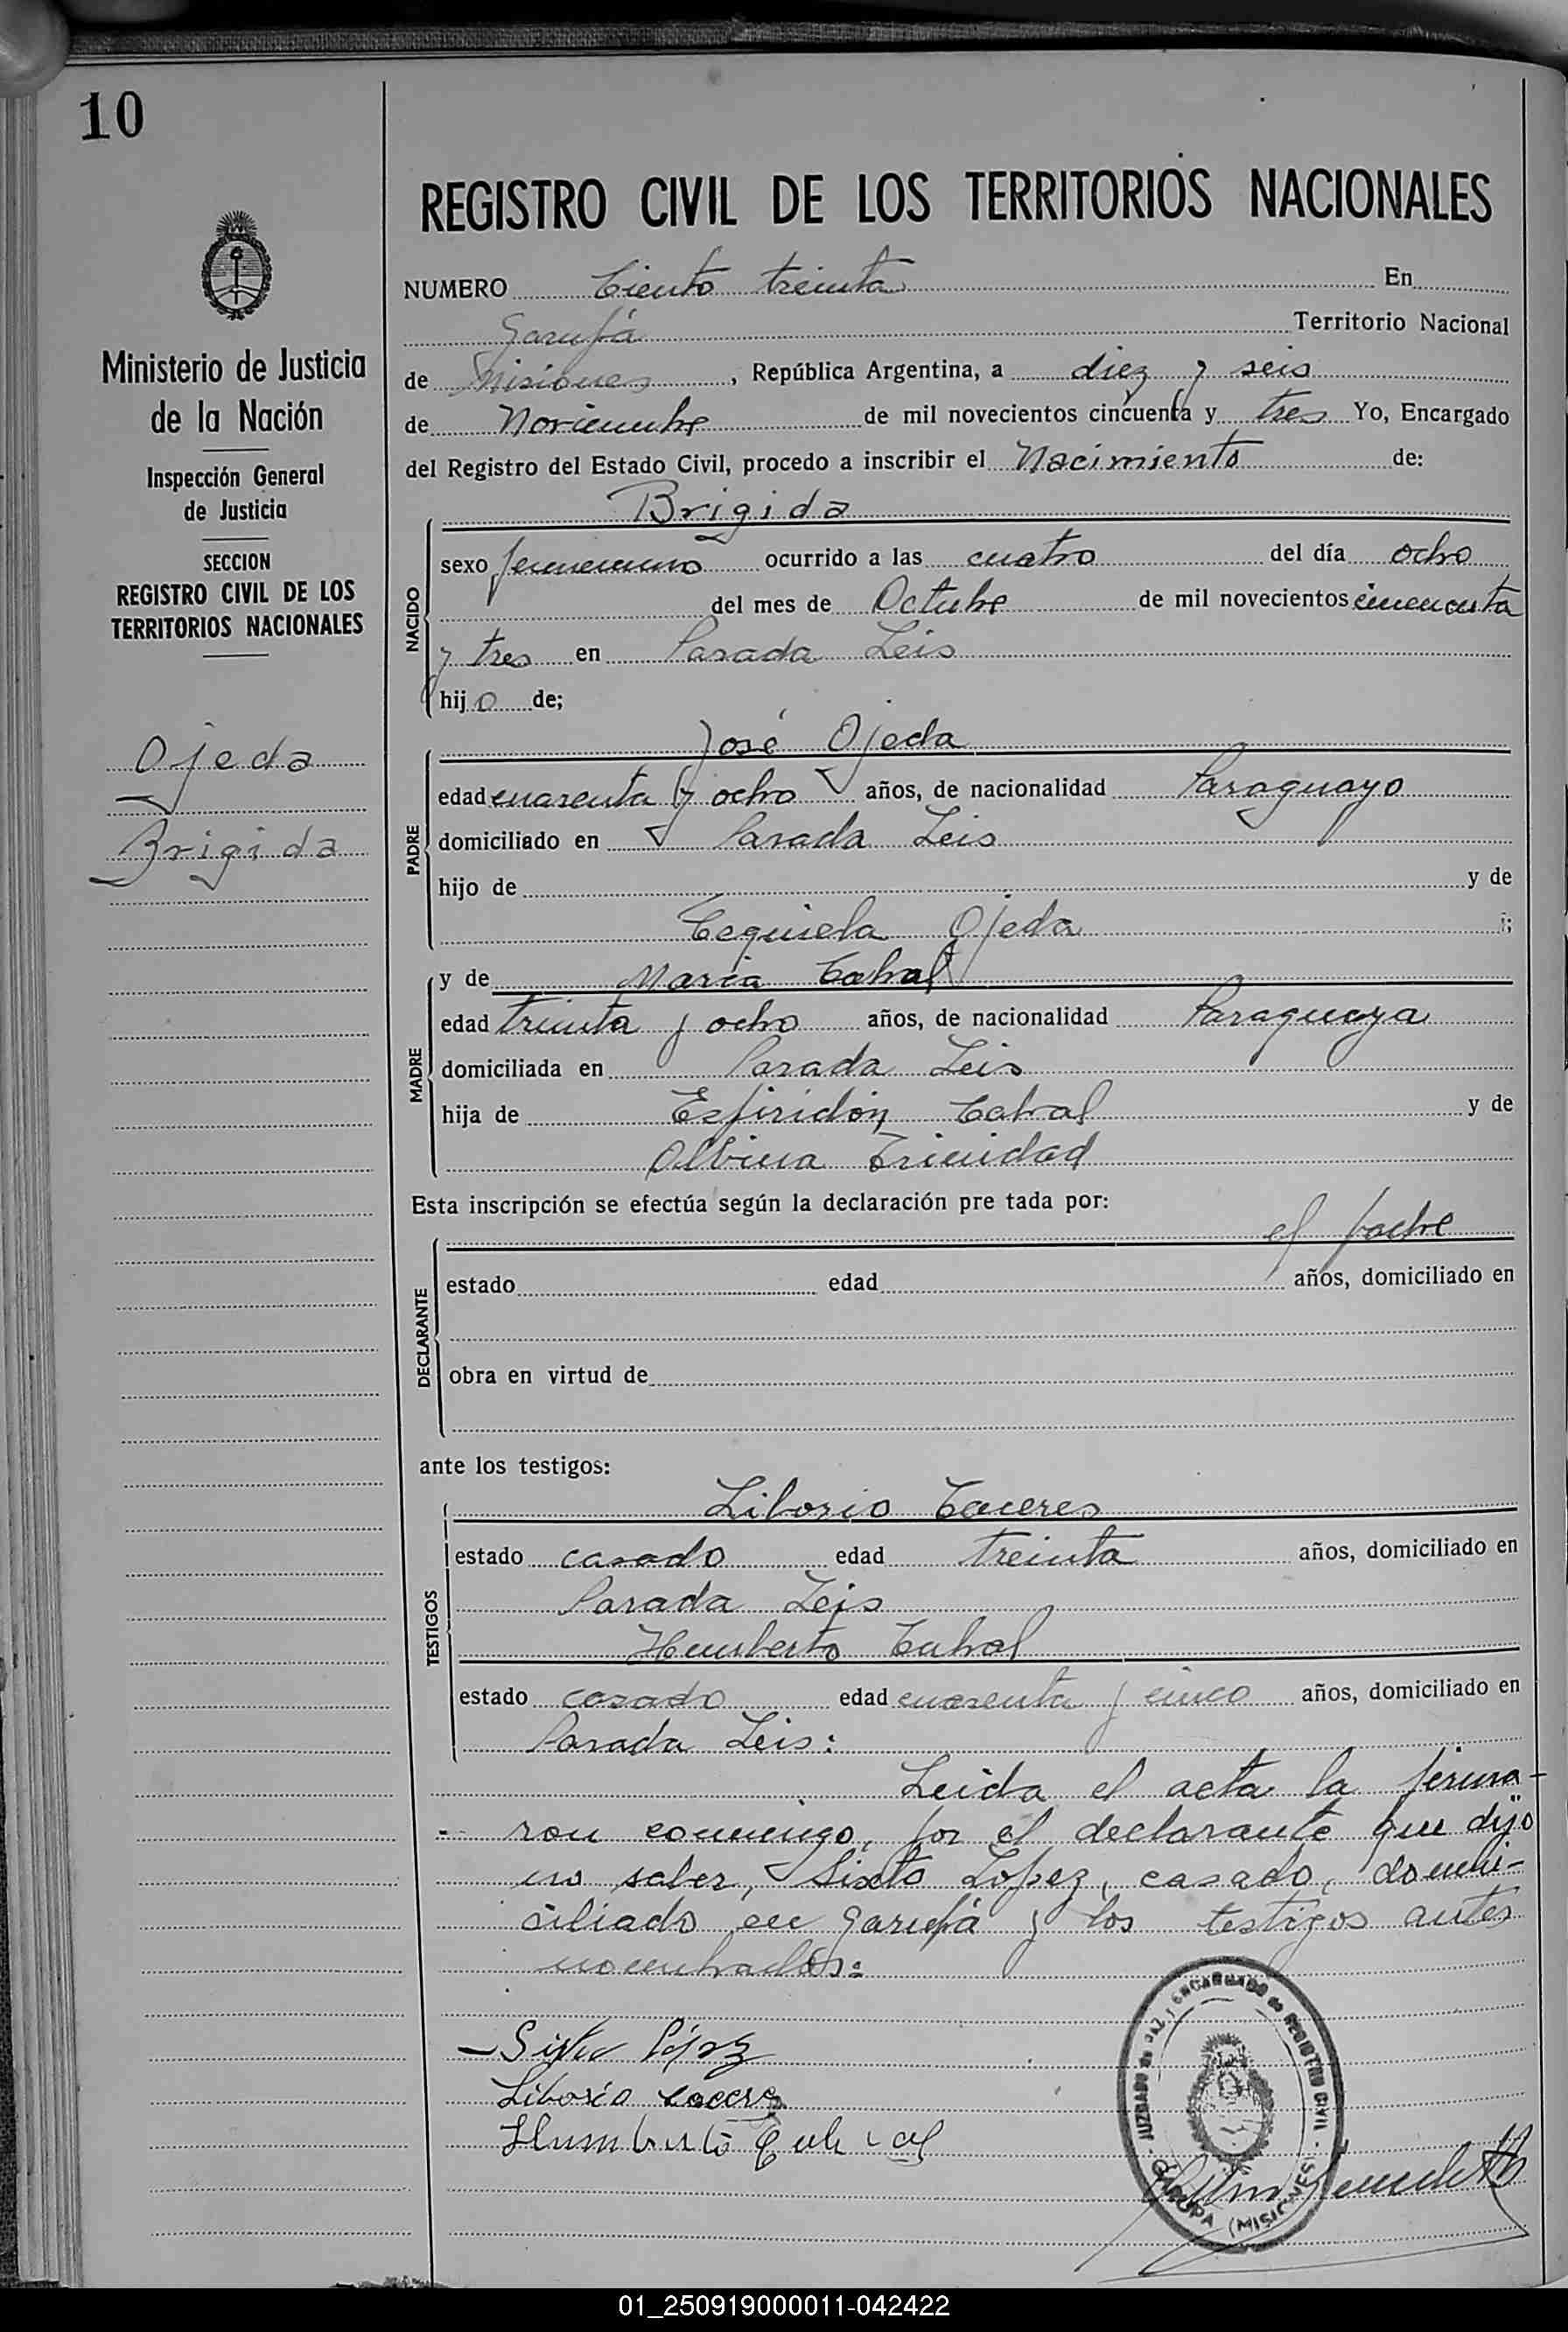 10
REGISTRO CIVIL DE LOS TERRITORIOS NACIONALES
NUMERO Ciento treinta En
Garupá Territorio Nacional
de Misiones, República Argentina, a diez y seis
de Noviembre de mil novecientos cincuenta y tres Yo, Encargado
del Registro del Estado Civil, procedo a inscribir el Nacimiento de:
Brigida
NACIDO
sexo femenino ocurrido a las cuatro del día ocho
del mes de Octubre de mil novecientos cincuenta
y tres en Parada Leis
hijo de;
José Ojeda
PADRE
edad cuarenta y ocho años, de nacionalidad Paraguayo
domiciliado en Parada Leis
hijo de y de
Ojeda ;
MADRE
y de Maria Cabral
edad treinta y ocho años, de nacionalidad Paraguaya
domiciliada en Parada Leis
hija de Espiridión Cabral y de
Albina Trinidad
Esta inscripción se efectúa según la declaración pre tada por:
el padre
DECLARANTE
estado edad años, domiciliado en
obra en virtud de
ante los testigos:
Liborio Caceres
TESTIGOS
estado casado edad treinta años, domiciliado en
Parada Leis
Humberto Cabral
estado casado edad cuarenta y cinco años, domiciliado en
Parada Leis:
Leida el acta la firma-
ron conmigo, por el declarante que dijo
no saber, Sixto Lopez, casado, domi-
ciliado en Garupá y los testigos antes
nombrados:
Sixto López
Liborio Caceres
Humberto Cabral
JUZGADO de PAZ y ENCARGADO de REGISTRO CIVIL
GARUPA (MISIONES)
Ministerio de Justicia
de la Nación
Inspección General
de Justicia
SECCION
REGISTRO CIVIL DE LOS
TERRITORIOS NACIONALES
Ojeda
Brigida
01_250919000011-042422